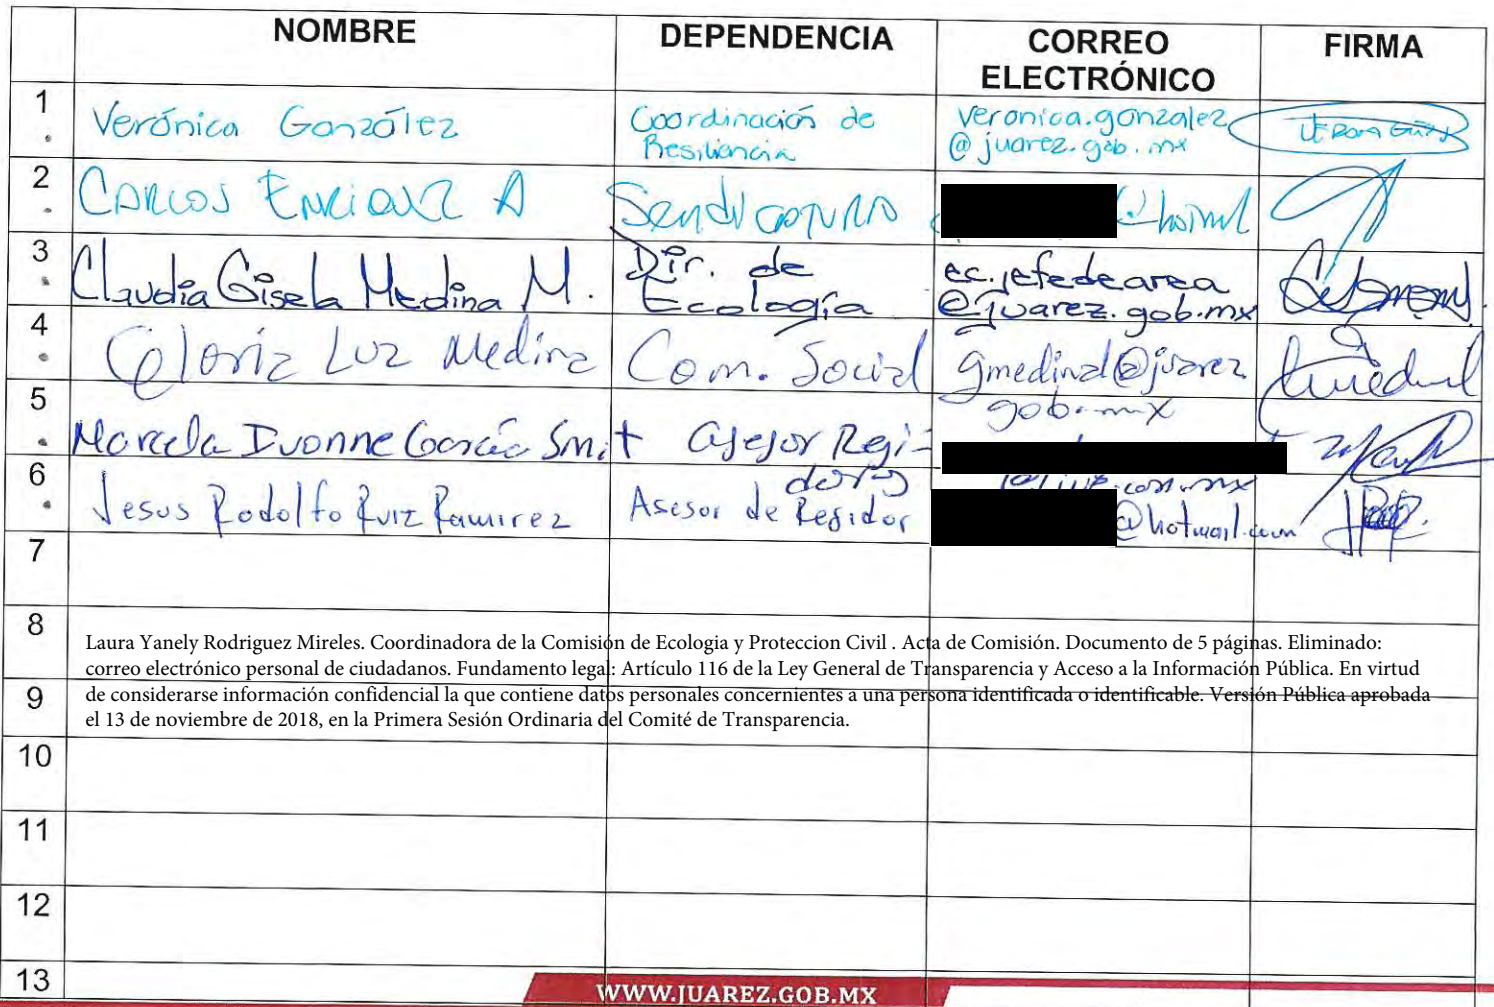 NOMBRE DEPENDENCIA CORREO ELECTRÓNICO FIRMA
1. Verónica González Coordinación de Resiliencia veronica.gonzalez@juarez.gob.mx
2. Carlos Enriquez A Sendicatura
3. Claudia Gisela Medina M. Dir. de Ecología ec.jefedearea@juarez.gob.mx
4. Gloria Luz Medina Com. Social gmedinal@juarez gob.mx
5. Marcela Ivonne García Smit Asesor Regidora @live.com.mx
6. Jesus Rodolfo Ruiz Ramirez Asesor de Regidor @hotmail.com
7
8
Laura Yanely Rodriguez Mireles. Coordinadora de la Comisión de Ecologia y Proteccion Civil . Acta de Comisión. Documento de 5 páginas. Eliminado:
correo electrónico personal de ciudadanos. Fundamento legal: Artículo 116 de la Ley General de Transparencia y Acceso a la Información Pública. En virtud
9
de considerarse información confidencial la que contiene datos personales concernientes a una persona identificada o identificable. Versión Pública aprobada
el 13 de noviembre de 2018, en la Primera Sesión Ordinaria del Comité de Transparencia.
10
11
12
13
WWW.JUAREZ.GOB.MX